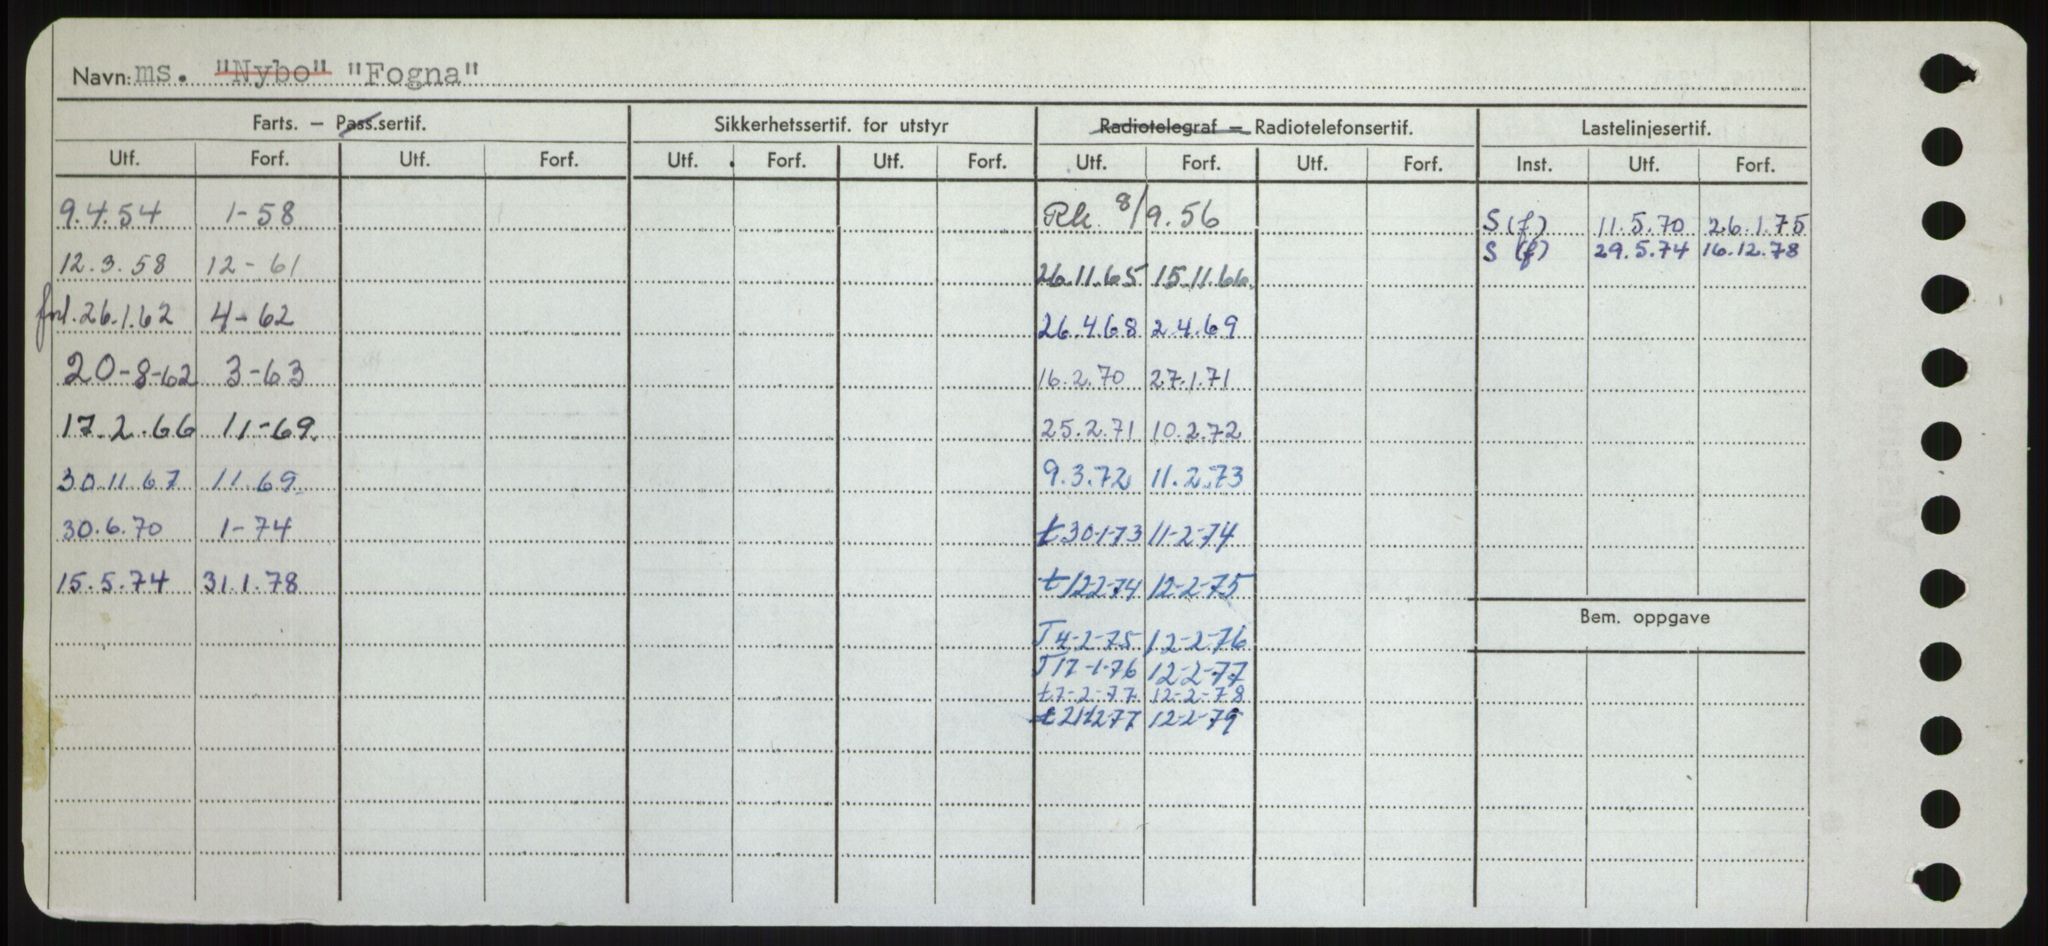 Navn: ms. "Nybo" "Fogna"
Farts. — Pass.sertif. Sikkerhetssertif. for utstyr Radiotelegraf — Radiotelefonsertif. Lastelinjesertif.
Utf. Forf. Utf. Forf. Utf. Forf. Utf. Forf. Utf. Forf. Utf. Forf. Inst. Utf. Forf.
9.4.54 1-58 Rk. 8/9.56 S(f) 11.5.70 26.1.75
S (f) 29.5.74 16.12.78
12.3.58 12-61 26.11.65 15.11.66.
forl. 26.1.62 4-62 26.4.68 2.4.69
20-8-62 3-63 16.2.70 27.1.71
17.2.66 11-69. 25.2.71 10.2.72
30.11.67 11.69 9.3.72 11.2.73
30.6.70 1-74 t 30-1-73 11-2-74
15.5.74 31.1.78 t 12-2-74 12-2-75
Bem. oppgave
T 4-2-75 12-2-76
T 17-1-76 12-2-77
t 7-2-77 12-2-78
t 21-12-77 12-2-79